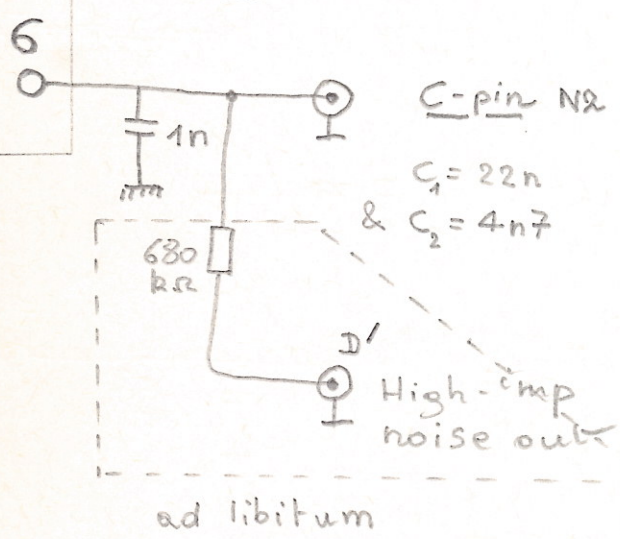 6
1n
C-pin N2
C₁ = 22n
& C₂ = 4n7
680
kΩ
D'
High-imp
noise out
ad libitum